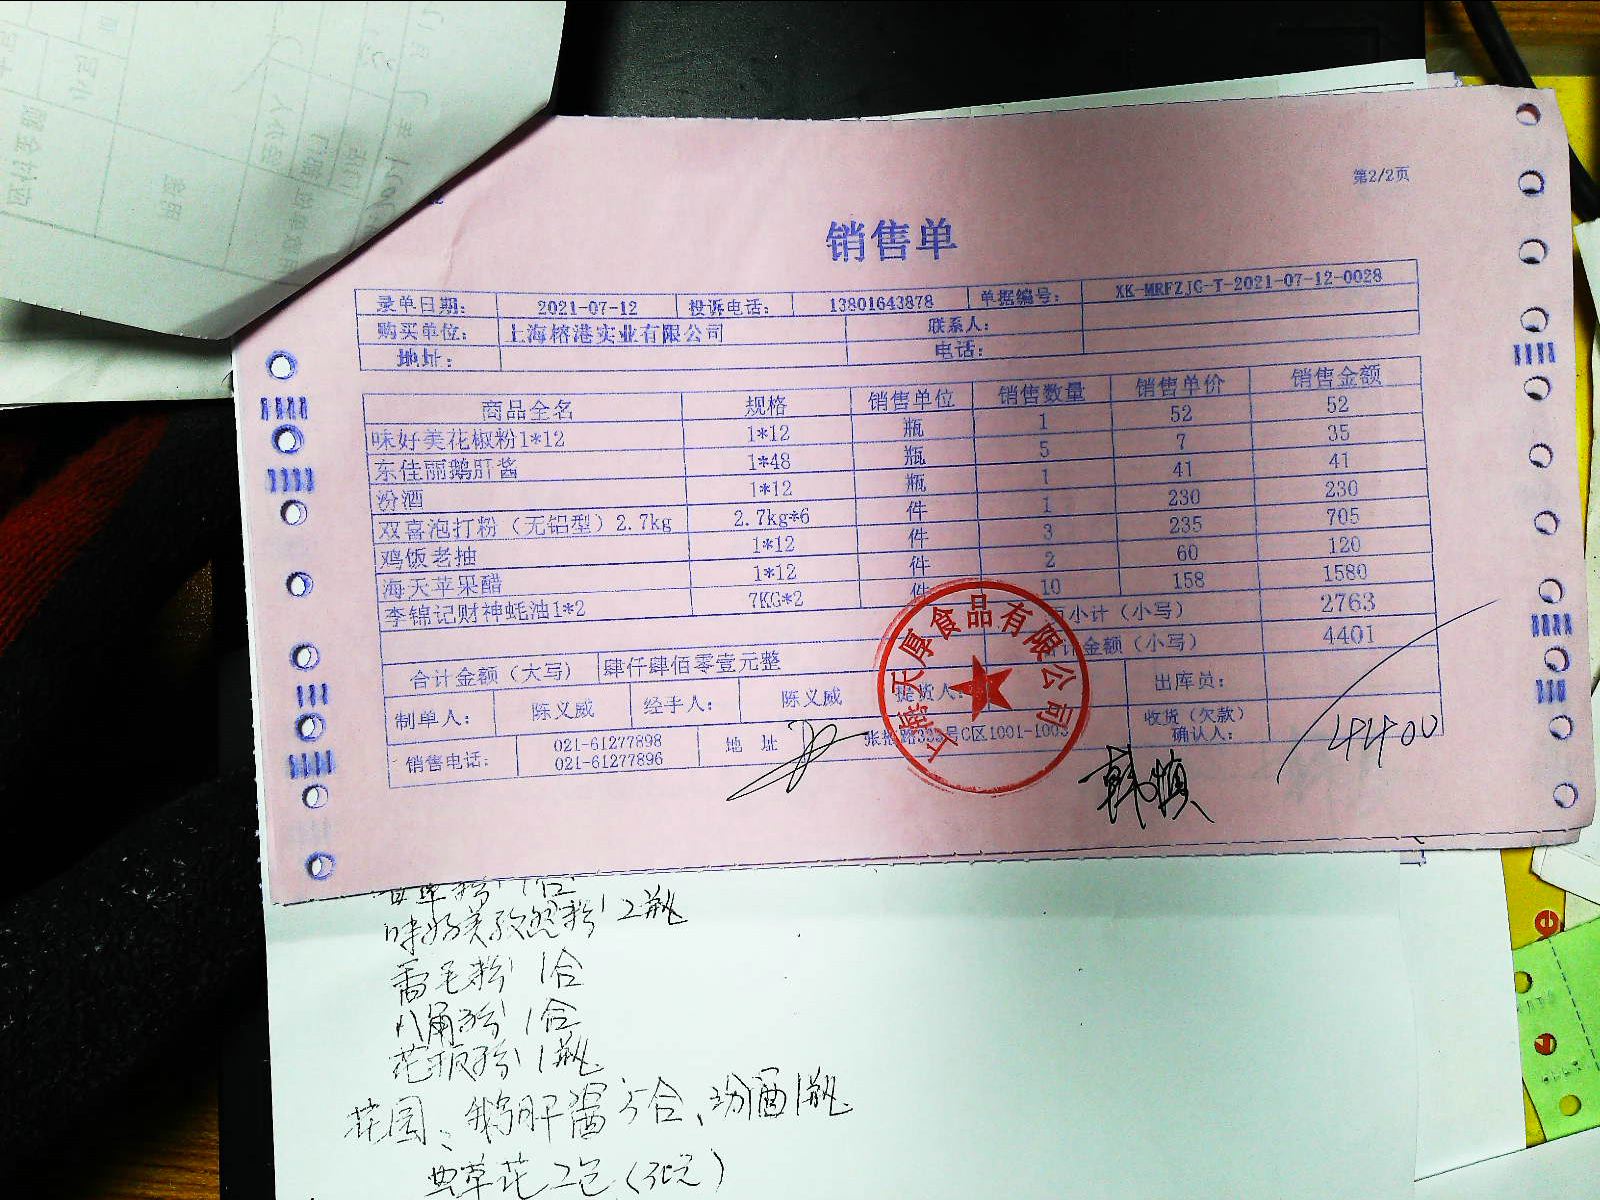 第2/2页
销售单
录单日期: 2021-07-12 投诉电话: 13801643878 单据编号: XK-MRFZJG-T-2021-07-12-0028
购买单位: 上海榕港实业有限公司 联系人:
地址: 电话:
商品全名 规格 销售单位 销售数量 销售单价 销售金额
味好美花椒粉1*12 1*12 瓶 1 52 52
东佳丽鹅肝酱 1*48 瓶 5 7 35
汾酒 1*12 瓶 1 41 41
双喜泡打粉（无铝型）2.7kg 2.7kg*6 件 1 230 230
鸡饭老抽 1*12 件 3 235 705
海天苹果醋 1*12 件 2 60 120
李锦记财神蚝油1*2 7KG*2 件 10 158 1580
小计（小写） 2763
合计金额（大写） 肆仟肆佰零壹元整 计金额（小写） 4401
制单人: 陈义威 经手人: 陈义威 提货人: 出库员:
销售电话: 021-61277898 021-61277896 地址 C区1001-1003 收货（欠款）确认人:
天厚食品有限公司
韩慎
4400
味好美孜然粉 2瓶
八角粉 1合
花椒粉 1瓶
花园、鹅肝酱5合、汾酒1瓶
虫草花2包